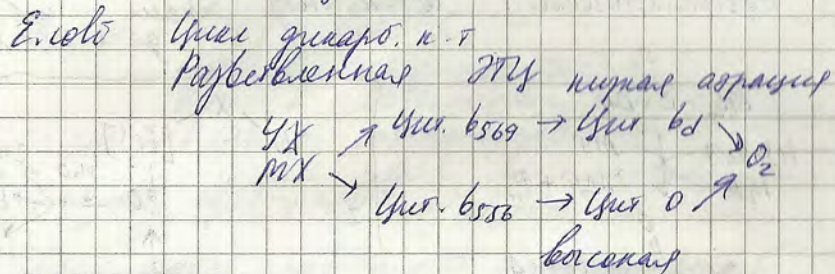 E. coli Цикл дикарб. к-т
Разветвленная ЭТЦ низкая аэрация
УХ → Цит. b569 → Цит. bd → O2
МХ → Цит. b556 → Цит O
высокая